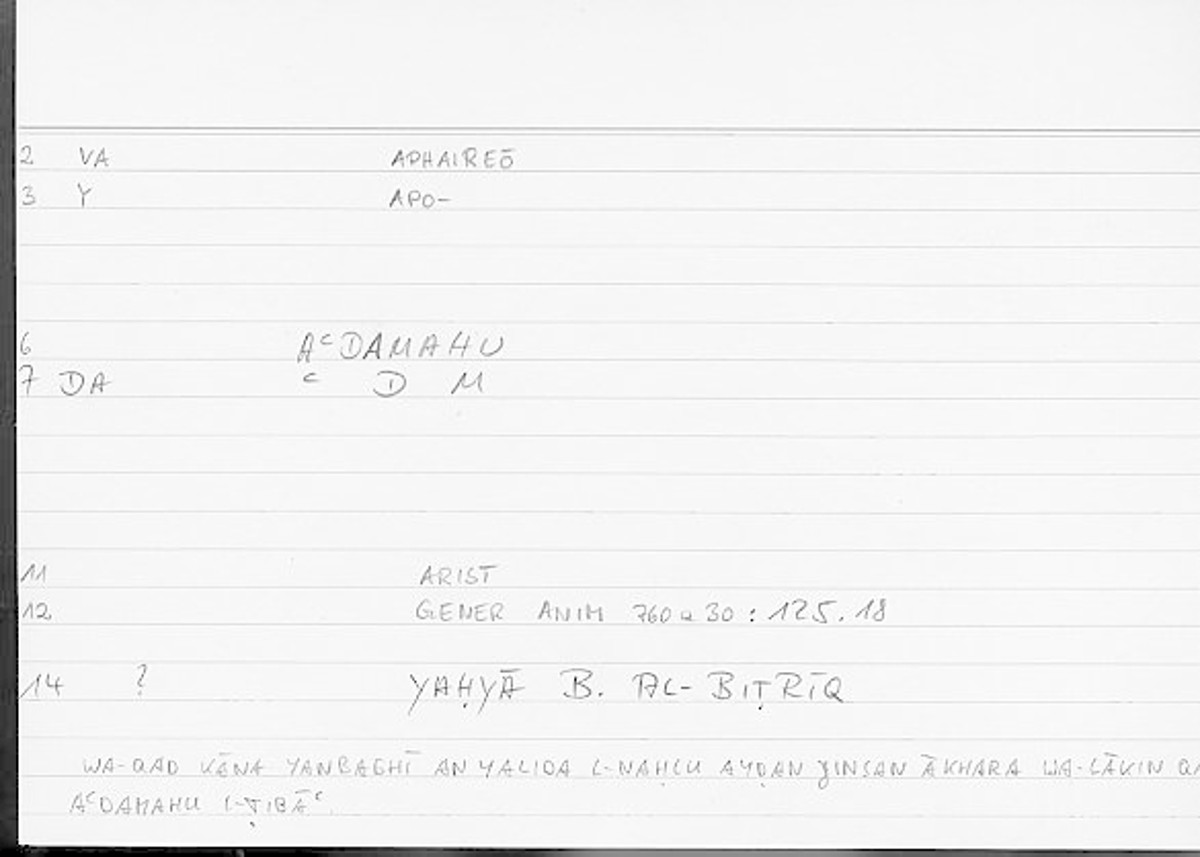 2 VA APHAIREŌ
3 Y APO-
6 AᶜDAMAHU
7 DA ᶜ D M
11 ARIST
12 GENER ANIM 760 a 30 : 125.18
14 ? YAḤYĀ B. AL-BIṬRĪQ
WA-QAD KĀNA YANBAGHĪ AN YALIDA L-NAḤLU AYḌAN ǦINSAN ĀKHARA WA-LĀKIN
AᶜDAMAHU L-ṬIBĀᶜ.